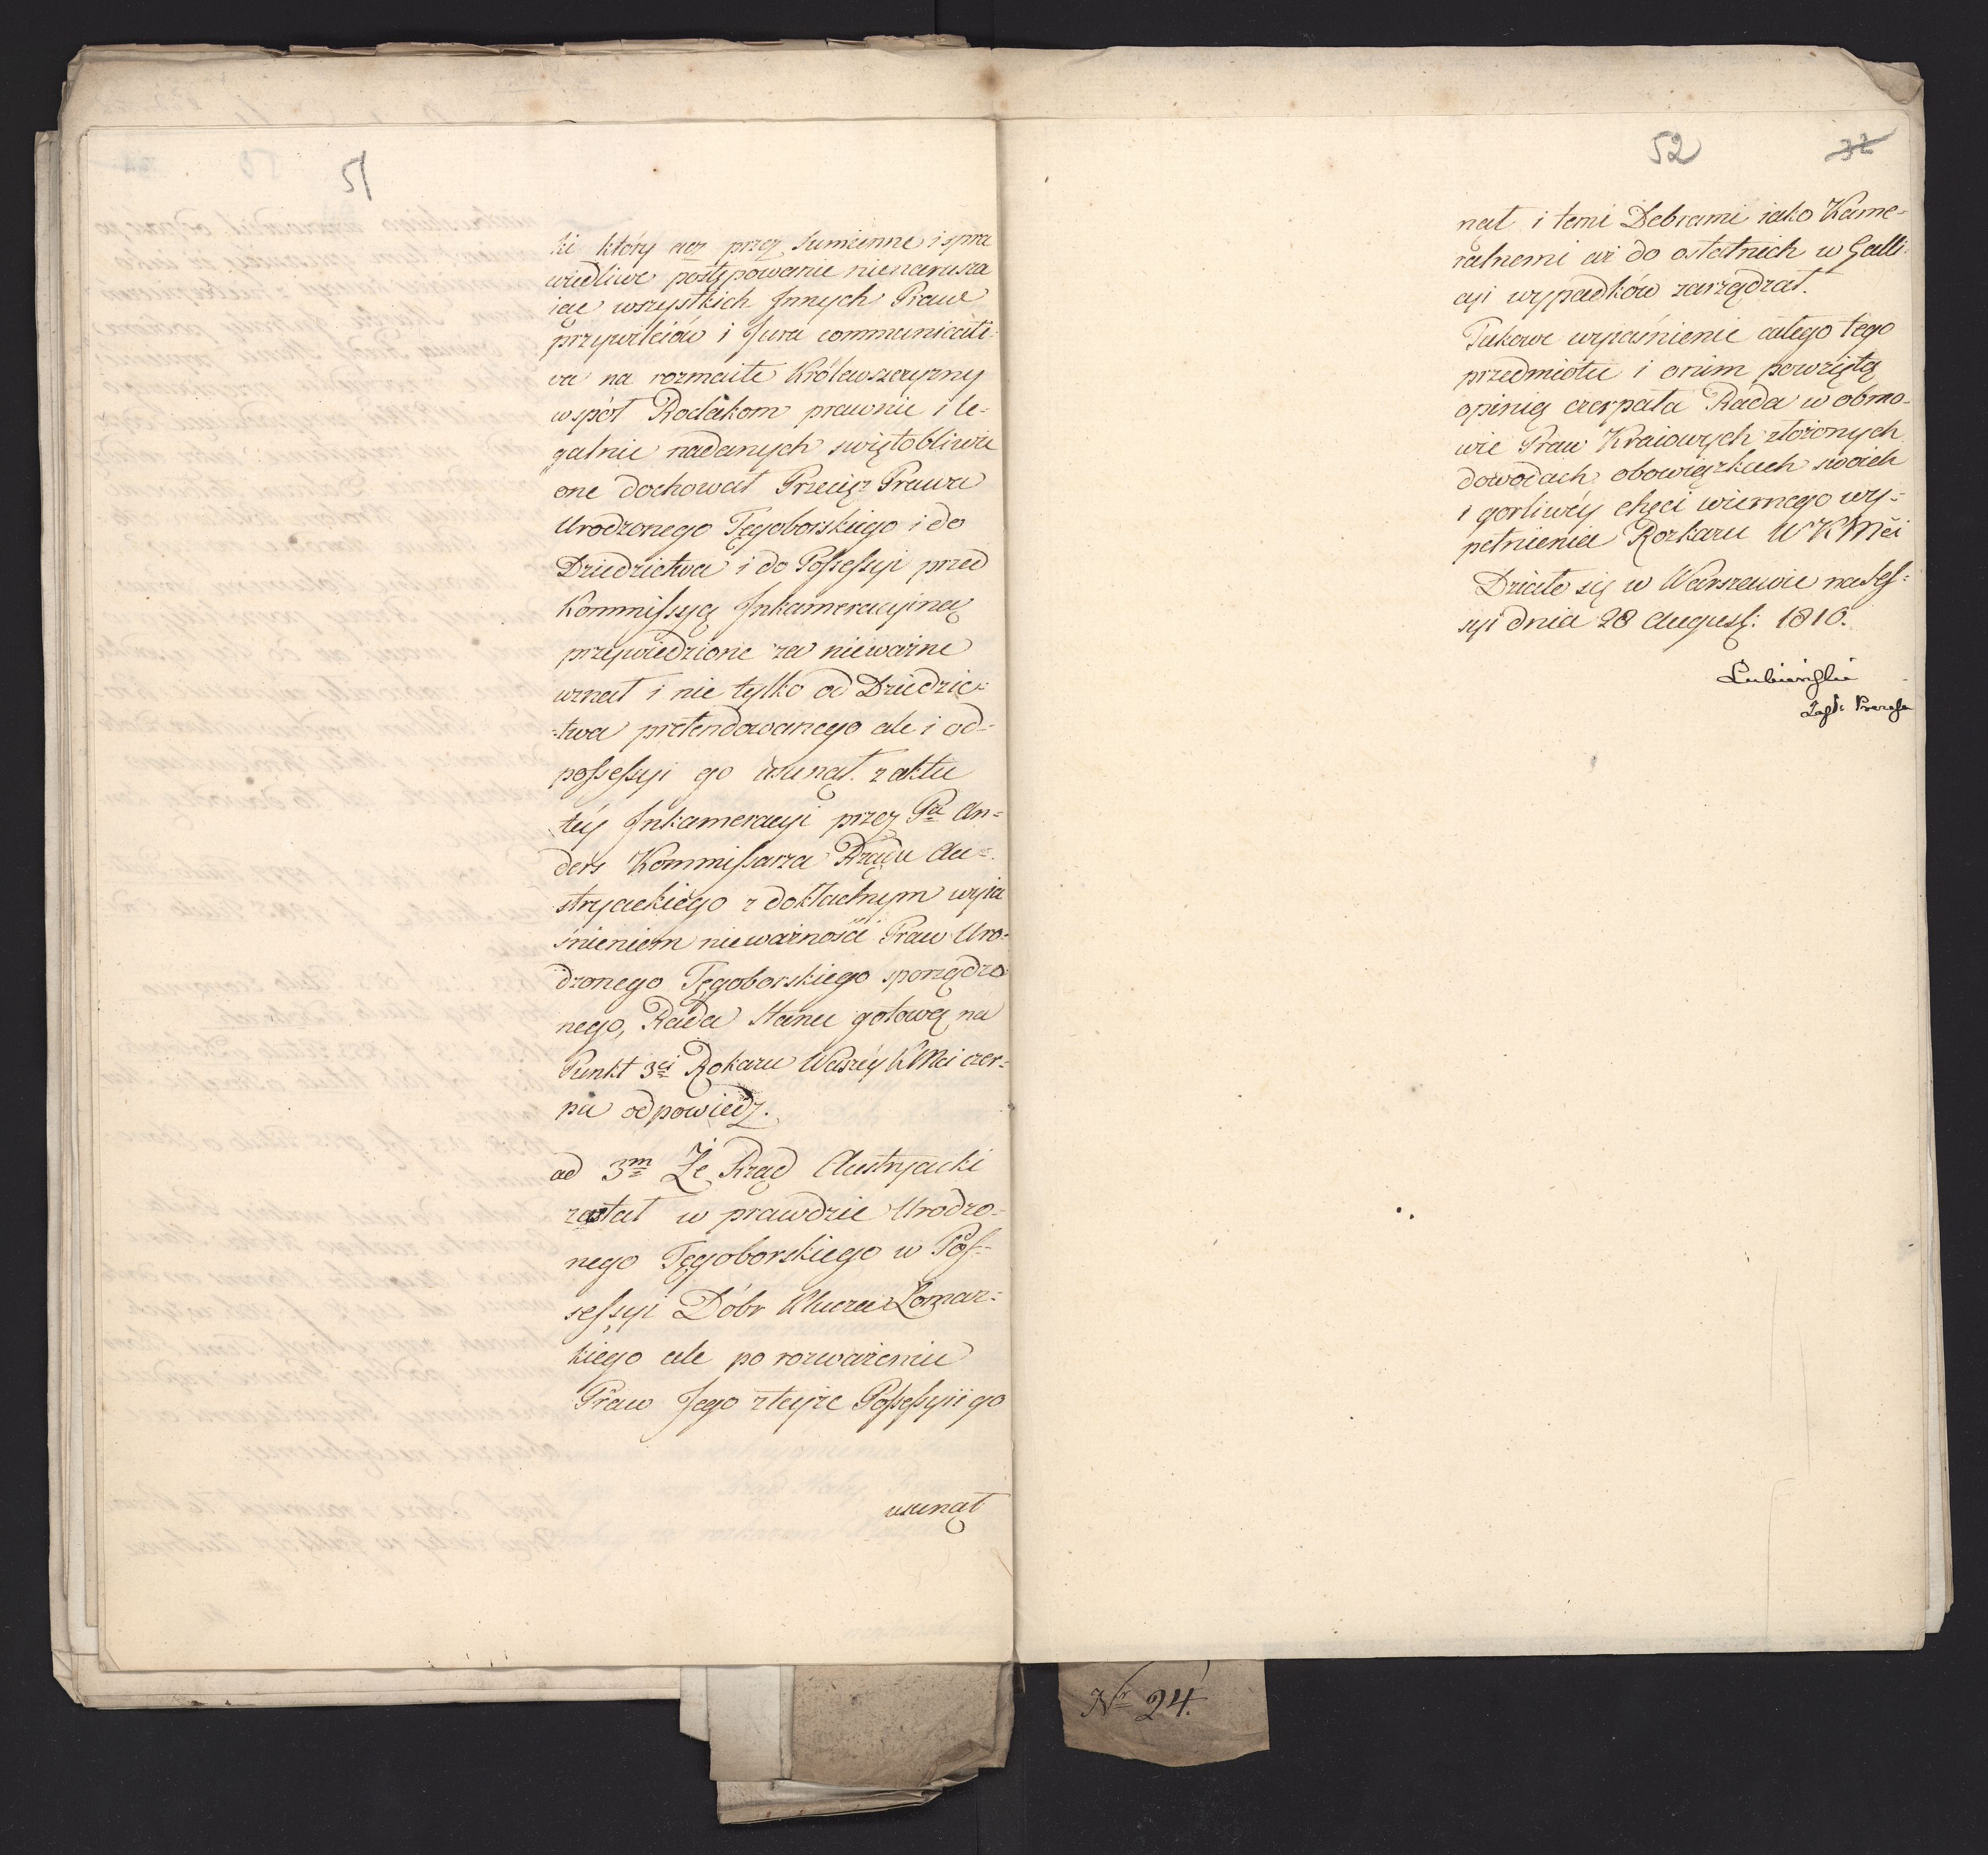 51
ki który acz przez sumienne i spra
wiedliwe postępowanie nienarusza
iąc wszystkich Innych Praw
przywileiów i Jura communicati-
va na rozmaite Królewszczyzny
współ Rodakom prawnie i le-
galnie nadanych swiętobliwie
one dochował Przecięż Prawa
Urodzonego Tęgoborskiego i do
Dziedzictwa i do Possessyi przed
Kommissyą Inkameracyiną
przywiedzione za nieważne
uznał i nie tylko od Dziedzic-
-twa pretendowanego ale i od-
possessyi go usunął. z aktu
téy Inkameracyi przez Pa An-
ders Kommissarza Rządu Au-
stryackiego z dokładnym wyia
śnieniem nieważności Praw Uro-
dzonego Tęgoborskiego sporządzo
nego, Rada Stanu gotową na
Punkt 3ci Rokazu Waszéy KMci czer-
pa odpowiedz.
ad 3m Że Rząd Austryacki
zastał w prawdzie Urodzo-
nego Tęgoborskiego w Pos-
sessyi Dóbr Klucza Łomaz-
kiego ale po rozważeniu
Praw Jego z teyże Possessyii go
usunął
52
32
nął i temi Dobrami iako Kame-
ralnemi aż do ostatnich w Galli-
cyi wypadków zarządzał.
Takowe wyiaśnienie całego tego
przedmiotu i onim powziętą
opinią czerpała Rada w obmo-
wie Praw Kraiowych złożonych
dowodach obowiązkach swoich
i gorliwéy chęci wiernego wy-
pełnienia Rozkazu WKMci
Działo się w Warszawie na Ses-
syi dnia 28 August: 1810.
Lubieński
Nr 24.